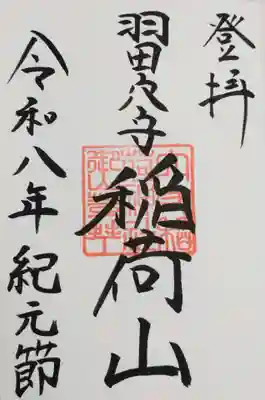 登拝
羽田穴守
稲荷山
令和八年 紀元節